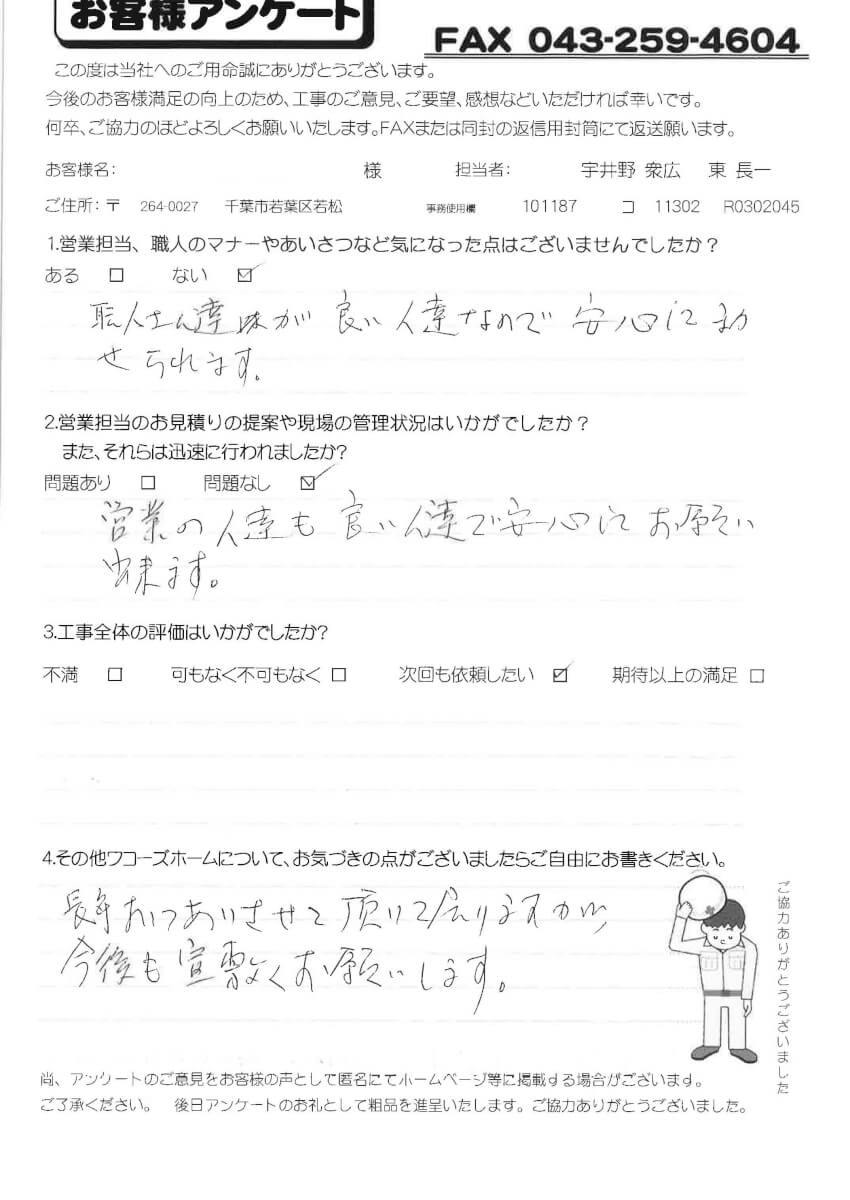 お客様アンケート
FAX 043-259-4604
この度は当社へのご用命誠にありがとうございます。
今後のお客様満足の向上のため、工事のご意見、ご要望、感想などいただければ幸いです。
何卒、ご協力のほどよろしくお願いいたします。FAXまたは同封の返信用封筒にて返送願います。
お客様名： 様 担当者： 宇井野 衆広 東 長一
ご住所：〒 264-0027 千葉市若葉区若松 事務使用欄 101187 コ 11302 R0302045
1.営業担当、職人のマナーやあいさつなど気になった点はございませんでしたか？
ある □ ない ☑
職人さん達が 良い人達なので 安心にま
せられます。
2.営業担当のお見積りの提案や現場の管理状況はいかがでしたか？
また、それらは迅速に行われましたか?
問題あり □ 問題なし ☑
営業の人達も良い人達で安心にお願い
出来ます。
3.工事全体の評価はいかがでしたか?
不満 □ 可もなく不可もなく □ 次回も依頼したい ☑ 期待以上の満足 □
4.その他ワコーズホームについて、お気づきの点がございましたらご自由にお書きください。
長年おつきあいさせて頂いて居りますが、
今後も宜敷くお願いします。
ご協力ありがとうございました
尚、アンケートのご意見をお客様の声として匿名にてホームページ等に掲載する場合がございます。
ご了承ください。 後日アンケートのお礼として粗品を進呈いたします。ご協力ありがとうございました。